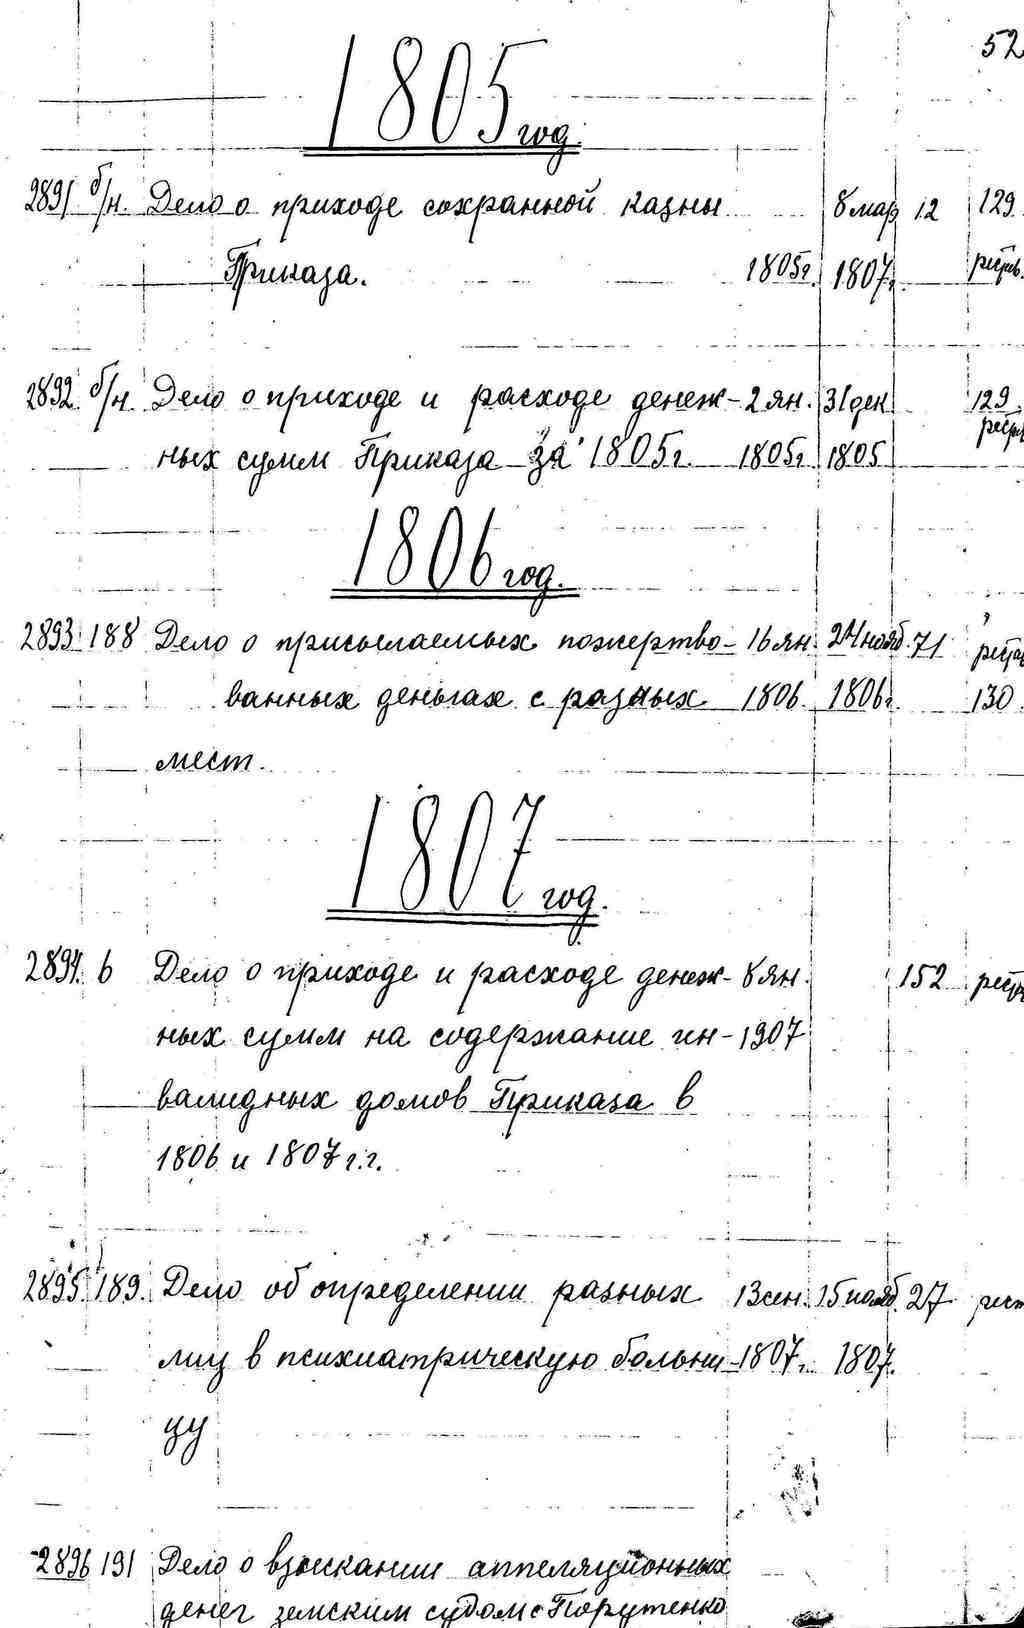 52
1805 год.
2891 б/н. Дело о приходе сохранной казны 8 мар 12 129.
Приказа. 1805г. 1807г.
2892 б/н. Дело о приходе и расходе денеж- 2 ян. 31 дек 129.
ных сумм Приказа за 1805г. 1805г 1805
1806 год.
2893 188 Дело о присылаемых пожертво- 16 ян. 24 нояб. 71
ванных деньгах с разных 1806. 1806г. 130.
мест.
1807 год.
2894. 6 Дело о приходе и расходе денеж- 8 ян. 152
ных сумм на содержание ин- 1907
валидных домов Приказа в
1806 и 1807 г.г.
2895. 189. Дело об определении разных 13 сен. 15 нояб. 27
лиц в психиатрическую больни- 1807г. 1807.
цу
2896 191 Дело о взыскании аппеляционных
денег земским судом с Порутенко